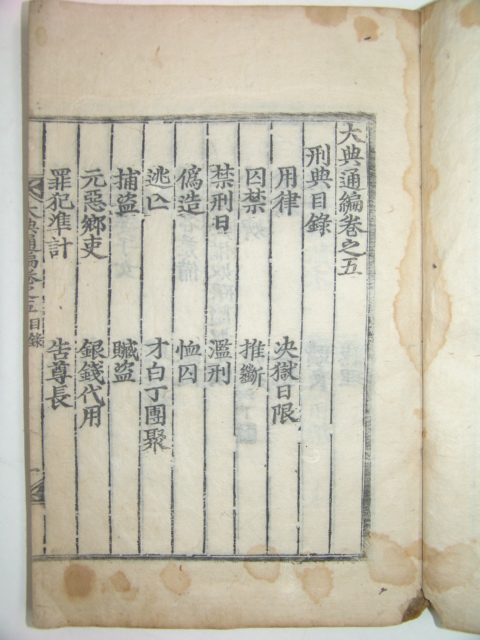 大典通編卷之五
刑典目錄
用律 决獄日限
囚禁 推斷
禁刑日 濫刑
僞造 恤囚
逃亡 才白丁團聚
捕盜 贓盜
元惡鄕吏 銀錢代用
罪犯準計 告尊長
大典通編卷之五目錄